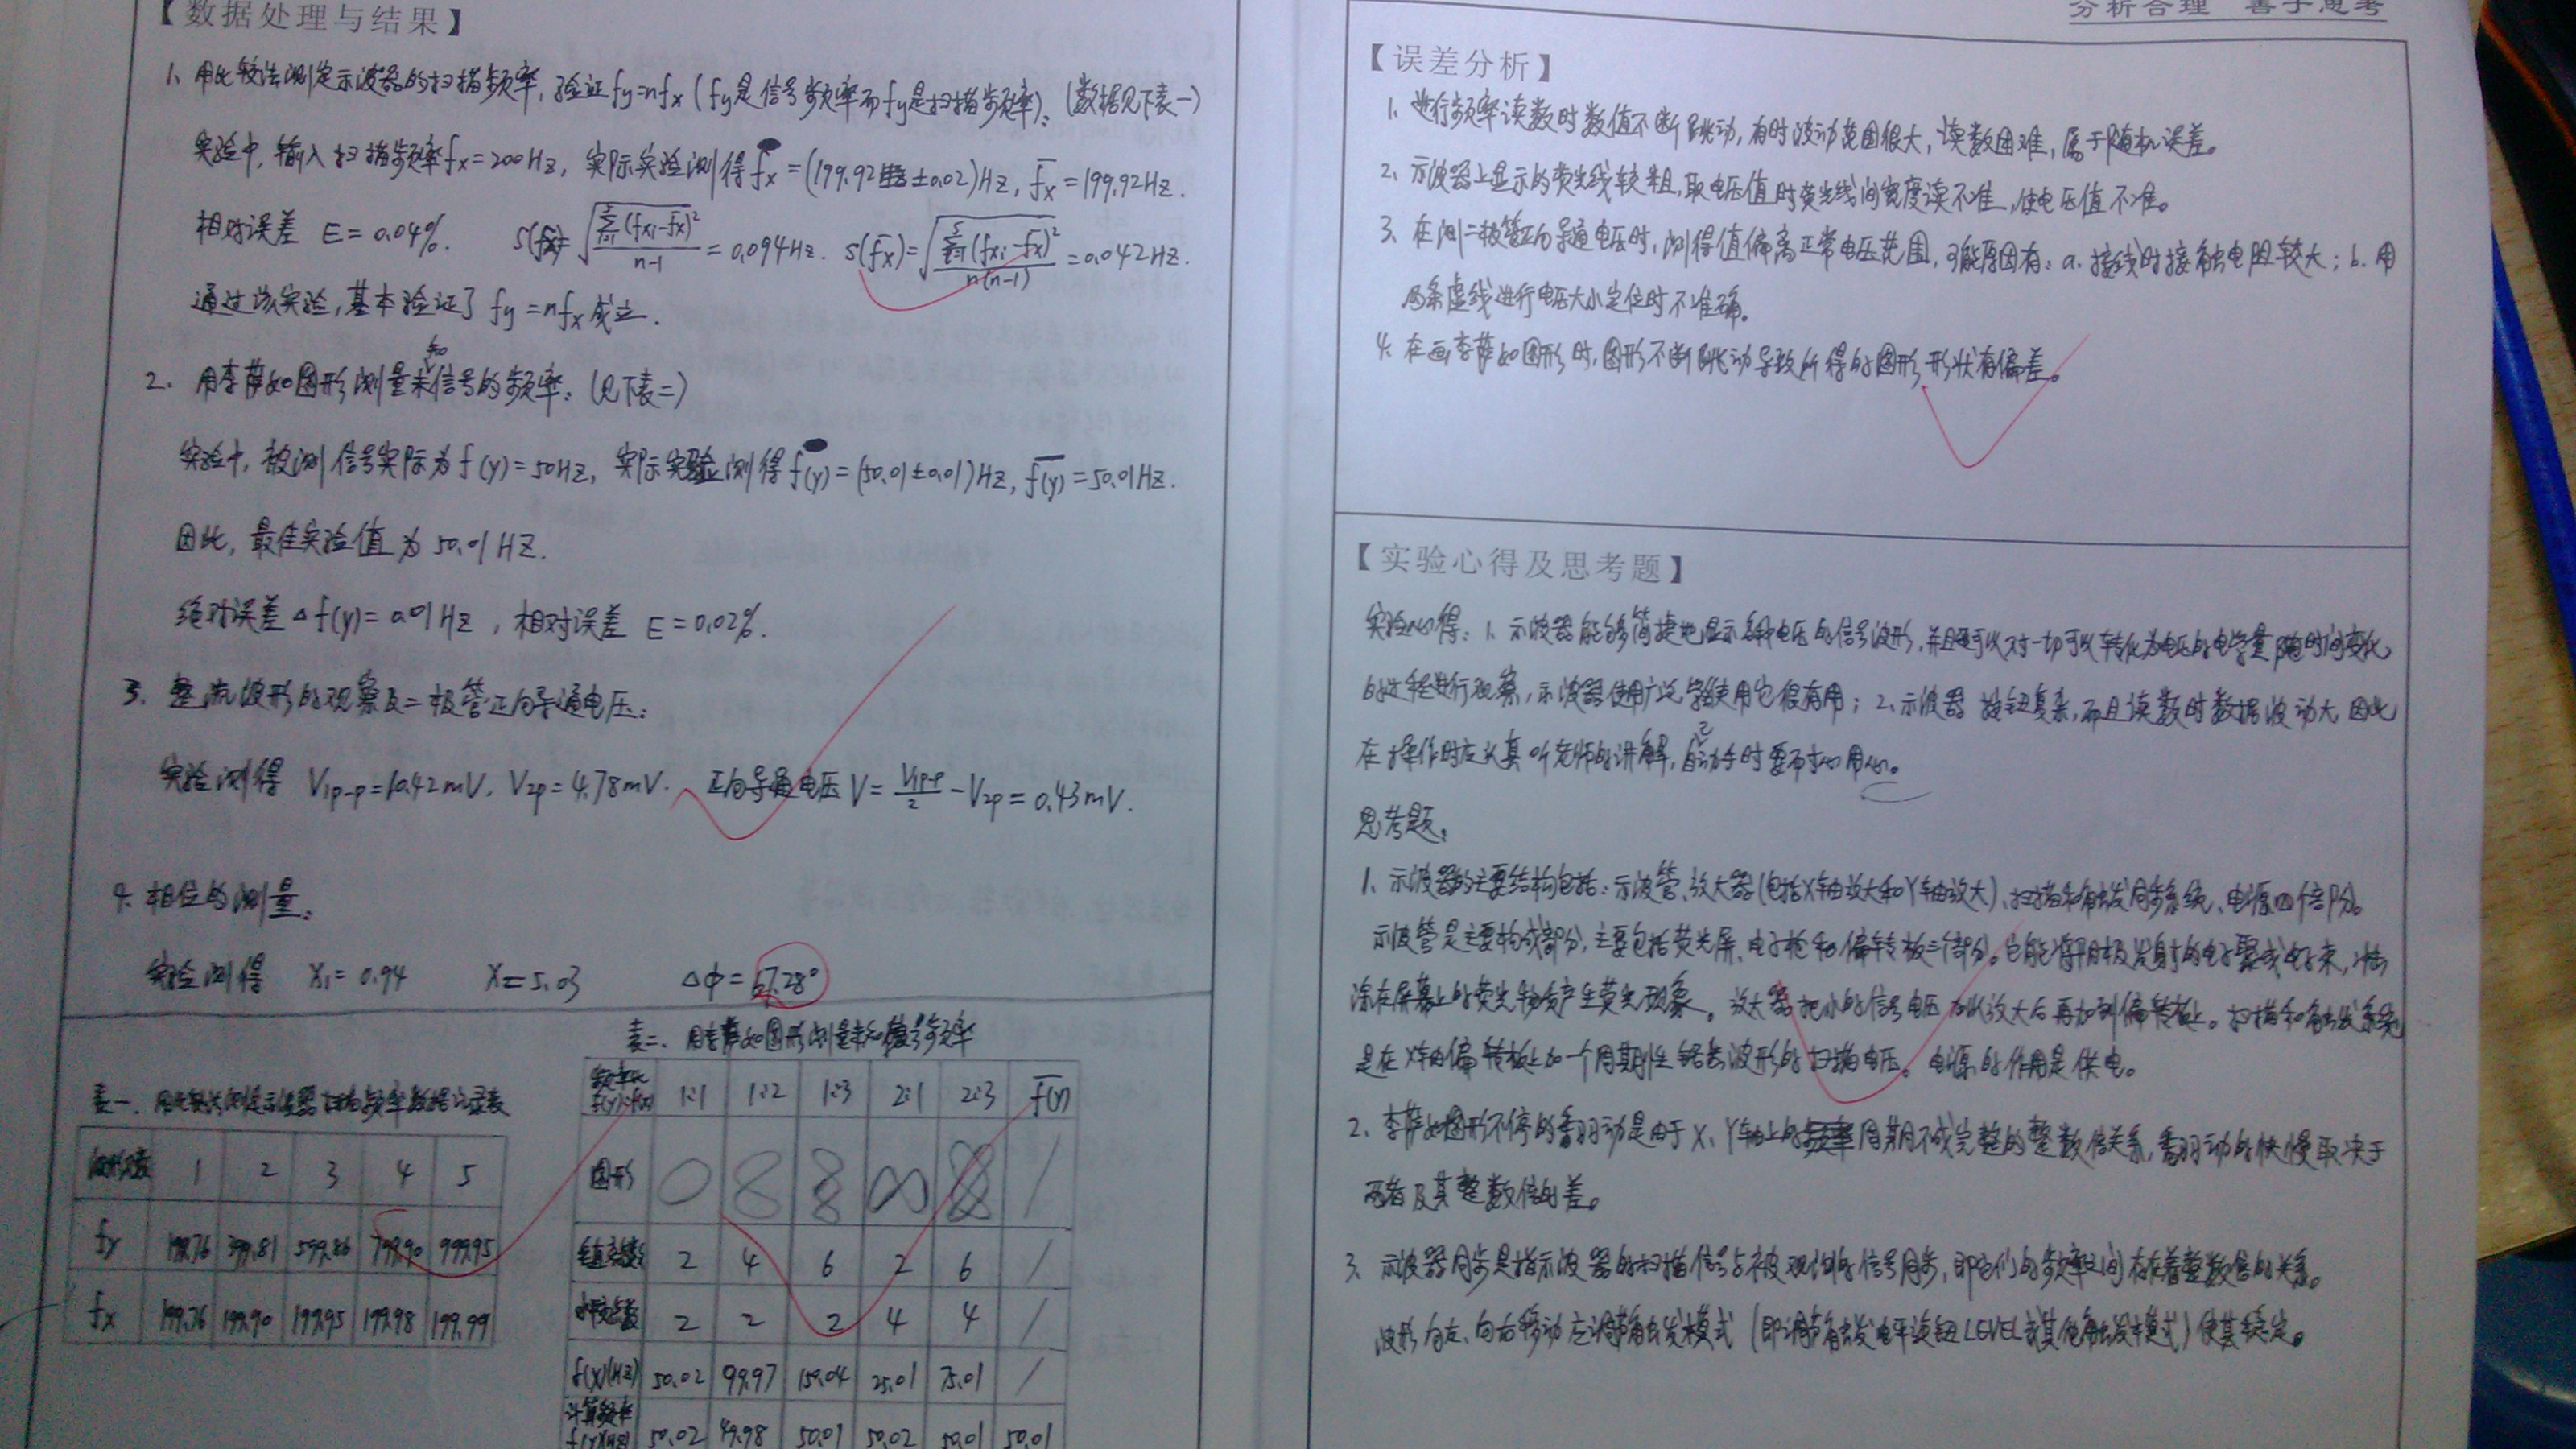 【数据处理与结果】
1、用比较法测定示波器的扫描频率,验证fy=nfx(fy是信号频率而fy是扫描频率):(数据见下表一)
实验中,输入扫描频率fx=200Hz,实际实验测得fx=(199.92±0.02)Hz, f̅x=199.92Hz.
相对误差 E=0.04%. S(fx)=√(Σ(fxi-f̅x)²/(n-1))=0.094Hz. S(f̅x)=√(Σ(fxi-f̅x)²/(n(n-1)))=0.042Hz.
通过该实验,基本验证了fy=nfx成立.
2、用李萨如图形测量未知信号的频率:(见下表二)
实验中,被测信号实际为f(y)=50Hz,实际实验测得f(y)=(50.01±0.01)Hz, f̅(y)=50.01Hz.
因此,最佳实验值为50.01HZ.
绝对误差△f(y)=0.01Hz,相对误差 E=0.02%.
3、整流波形的观察及二极管正向导通电压:
实验测得 V1p-p=10.42mV. V2p=4.78mV. 正向导通电压V=V1p-p/2-V2p=0.43mV.
4.相位的测量:
实验测得 X1=0.94 X=5.03 △φ=67.28°
表一、用比较法测定示波器扫描频率数据记录表
1 2 3 4 5
fy 199.76 399.81 599.86 799.90 999.95
fx 199.76 199.90 199.95 199.98 199.99
表二、用李萨如图形测量未知信号频率
频率比f(y):f(x) 1:1 1:2 1:3 2:1 2:3 f̅(y)
图形 /
垂直交点数 2 4 6 2 6 /
水平交点数 2 2 2 4 4 /
f(x)(HZ) 50.02 99.97 150.04 25.01 75.01 /
计算频率f(y)(HZ) 50.02 49.98 50.01 50.02 50.01 50.01
分析合理 善于思考
【误差分析】
1、进行频率读数时数值不断跳动,有时波动范围很大,读数困难,属于随机误差。
2、示波器上显示的荧光线较粗,取电压值时荧光线间宽度读不准,使电压值不准。
3、在测二极管正向导通电压时,测得值偏离正常电压范围,可能原因有:a.接线时接触电阻较大;b.用
两条虚线进行电压大小定位时不准确。
4、在画李萨如图形时,图形不断跳动导致所得的图形形状有偏差。
【实验心得及思考题】
实验心得:1、示波器能够简捷地显示各种电压的信号波形,并且还可以对一切可以转化为电压的电学量随时间变化
的过程进行观察,示波器使用广泛,学会使用它很有用;2、示波器按钮复杂,而且读数时数据波动大,因此
在操作时应认真听老师的讲解,自己动手时要耐心用心。
思考题:
1、示波器的主要结构包括:示波管、放大器(包括X轴放大和Y轴放大)、扫描和触发同步系统、电源四个部分。
示波管是主要构成部分,主要包括荧光屏、电子枪和偏转板三个部分。它能将阴极发射的电子聚成电子束,冲击
涂在屏幕上的荧光物质产生荧光现象。放大器把小的信号电压加以放大后再加到偏转板上。扫描和触发系统
是在X轴偏转板上加一个周期性锯齿波形的扫描电压。电源的作用是供电。
2、李萨如图形不停的翻动是由于X、Y轴上的周期不成完整的整数倍关系,翻动的快慢取决于
两者及其整数倍的差。
3、示波器同步是指示波器的扫描信号与被观测的信号同步,即它们的频率之间存在着整数倍的关系。
波形向左、向右移动应调节触发模式(即调节触发电平旋钮LEVEL或其他触发模式)使其稳定。